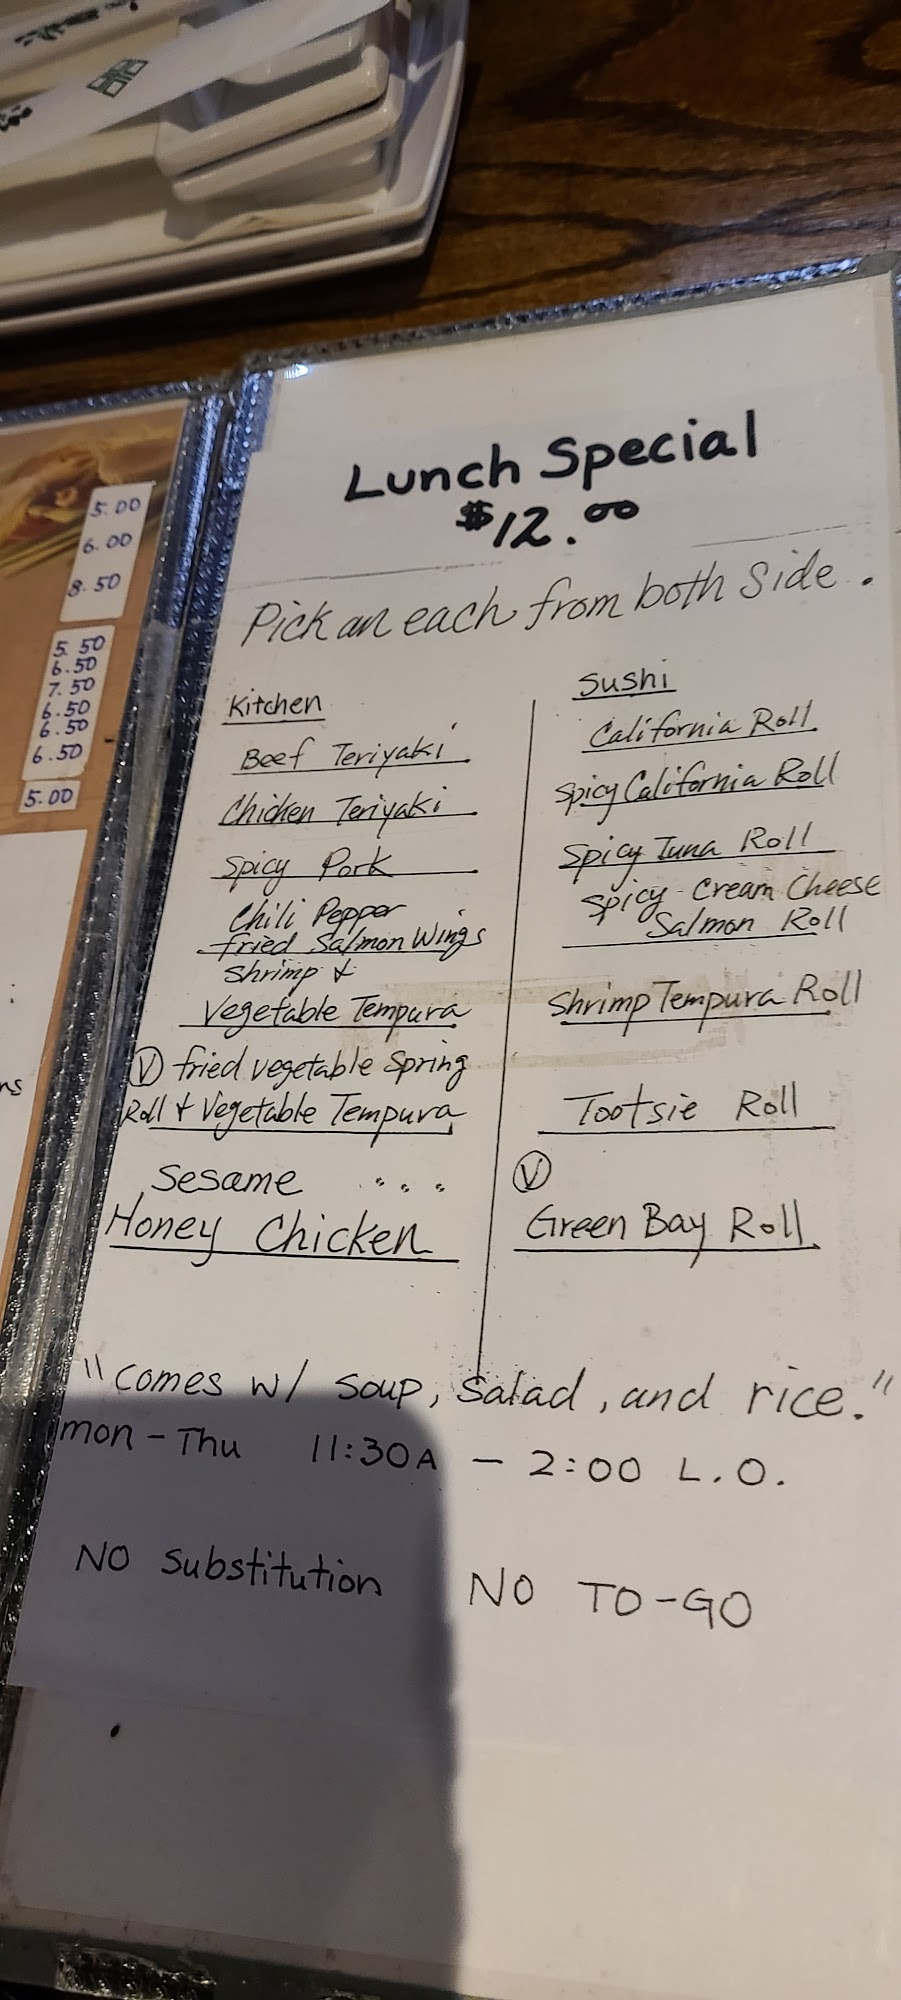 Lunch Special
$12.00
Pick an each from both Side.
Kitchen
Beef Teriyaki
Chicken Teriyaki
Spicy Pork
Chili Pepper
fried Salmon Wings
Shrimp &
Vegetable Tempura
Ⓥ fried vegetable Spring
Roll & Vegetable Tempura
Sesame
Honey Chicken
Sushi
California Roll
Spicy California Roll
Spicy Tuna Roll
Spicy Cream Cheese
Salmon Roll
Shrimp Tempura Roll
Tootsie Roll
Ⓥ
Green Bay Roll
"Comes w/ Soup, Salad, and rice."
mon - Thu 11:30A - 2:00 L.O.
NO Substitution NO TO-GO
5.00
6.00
8.50
5.50
6.50
7.50
6.50
6.50
6.50
5.00
ns